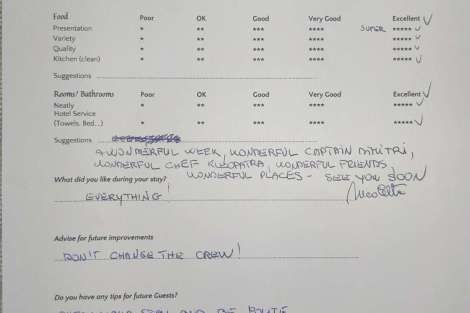 Food Poor OK Good Very Good Excellent ✓
Presentation * ** *** **** SUPER ***** ✓
Variety * ** *** **** ***** ✓
Quality * ** *** **** ***** ✓
Kitchen (clean) * ** *** **** ***** ✓
Suggestions
Rooms/ Bathrooms Poor OK Good Very Good Excellent ✓
Neatly * ** *** **** ***** ✓
Hotel Service
(Towels, Bed...) * ** *** **** ***** ✓
Suggestions
A WONDERFUL WEEK, WONDERFUL CAPTAIN DIMITRI,
WONDERFUL CHEF KLEOPATRA, WONDERFUL FRIENDS,
WONDERFUL PLACES - SEE YOU SOON
What did you like during your stay?
EVERYTHING!
Advise for future improvements
DON'T CHANGE THE CREW!
Do you have any tips for future Guests?